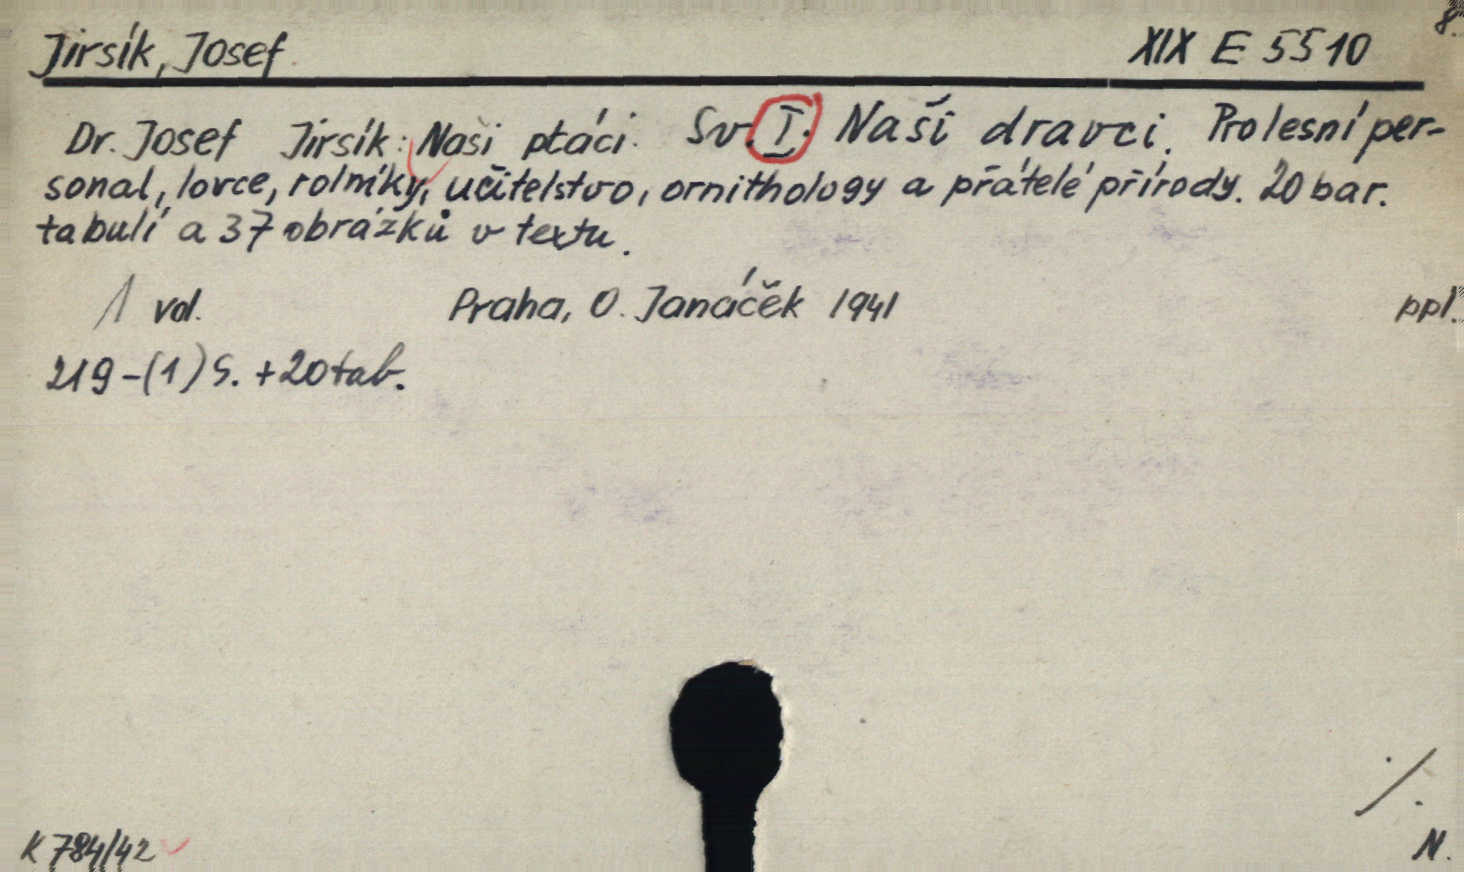 8.
Jirsík, Josef. XIX E 5510
Dr. Josef Jirsík: Naši ptáci. Sv. I. Naši dravci. Pro lesní per-
sonal, lovce, rolníky, učitelstvo, ornithology a přátelé přírody. 20 bar.
tabulí a 37 obrázků v textu.
1 vol. Praha, O. Janáček 1941 ppl.
219-(1) S. + 20 tab.
./.
K 784/42 N.